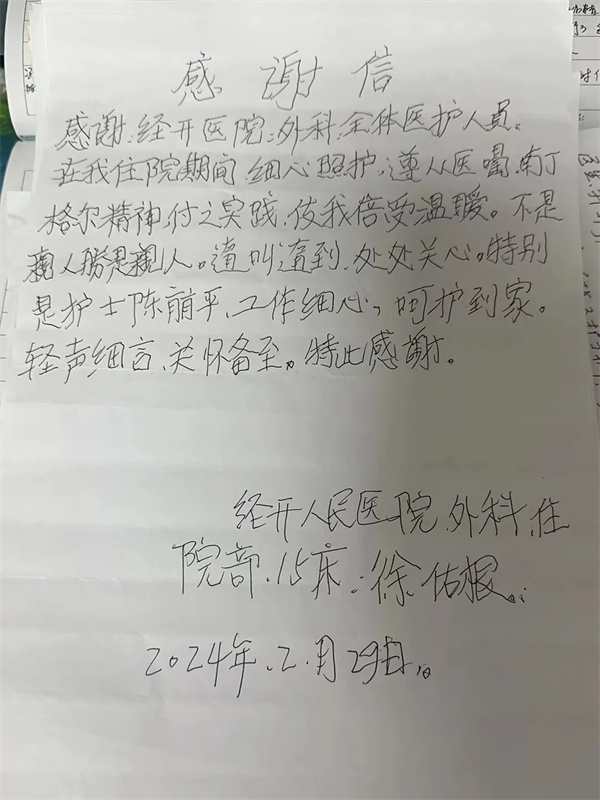 感谢信
感谢:经开医院:外科:全体医护人员.
在我住院期间.细心照护,遵从医嘱,南丁
格尔精神,付之实践.使我倍受温暖。不是
亲人胜是亲人。随叫随到.处处关心。特别
是护士陈丽平、工作细心,呵护到家。
轻声细言.关怀备至。特此感谢。
经开人民医院.外科.住
院部.15床:徐
2024年.2.月29日.